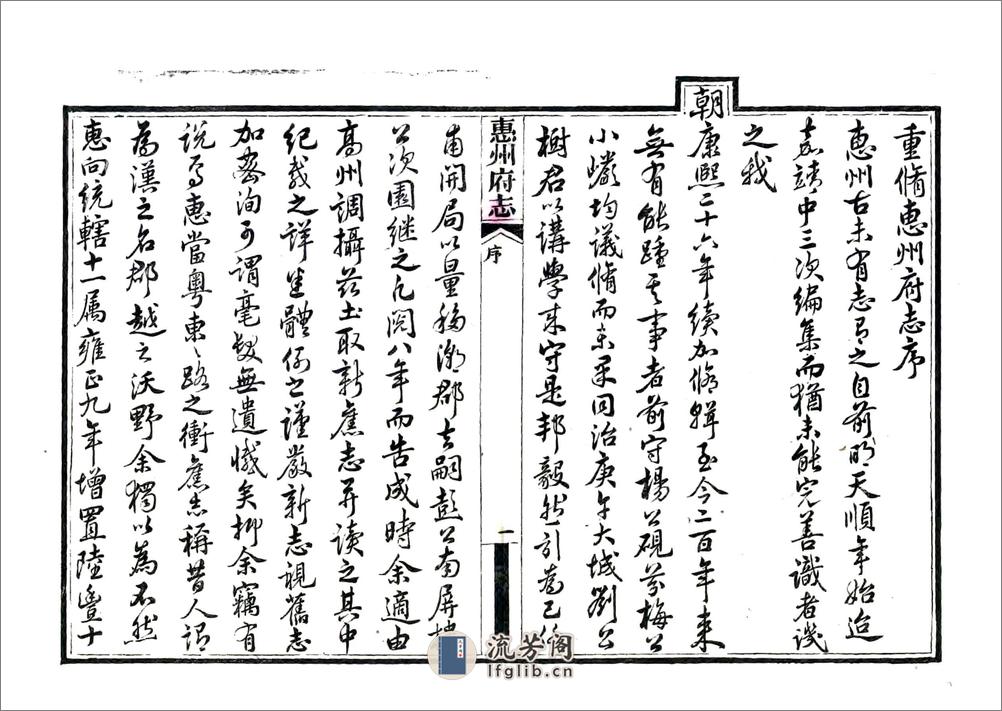 重脩惠州府志序
惠州古未有志有之自前明天順年始迨
嘉靖中三次編集而猶未能完善識者譏
之我
朝康熙二十六年續加脩輯至今二百年來
無有能踵其事者前守楊公硯芬梅公
小巗均議脩而未果同治庚午大城劉公
樹君以講學来守是邦毅然引為己任
惠州府志
序
一
甫開局以量移潮郡去嗣彭公南屏
公次園繼之凡閱八年而告成時余適由
高州調攝茲土取新舊志并讀之其中
紀載之詳坐體例之謹嚴新志視舊志
加密洵可謂毫髮無遺憾矣抑余竊有
說焉惠當粵東之路之衝舊志稱昔人謂
為漢之名郡越之沃野余獨以為不然
惠向統轄十一属雍正九年增置陸豐十
流芳阁
lfglib.cn